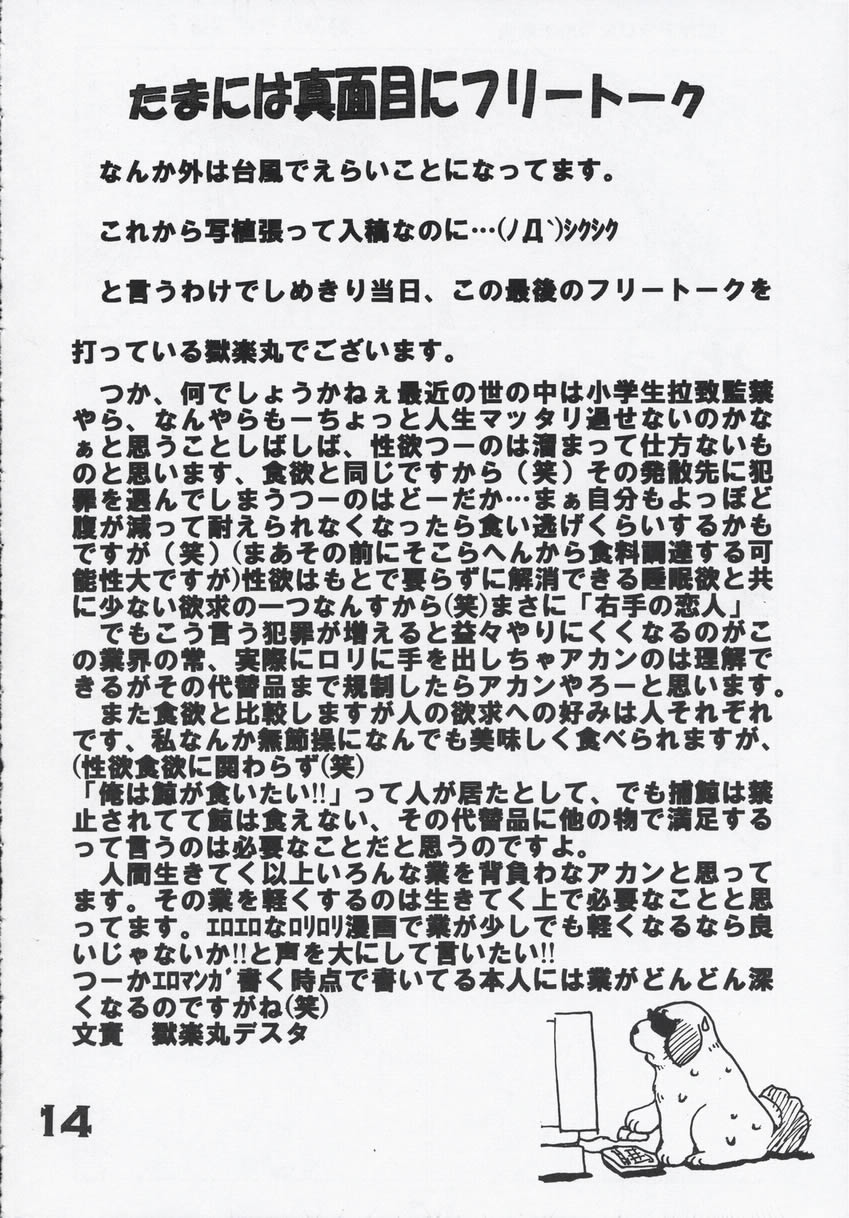 たまには真面目にフリートーク
なんか外は台風でえらいことになってます。
これから写植張って入稿なのに…(ノД`)ｼｸｼｸ
と言うわけでしめきり当日、この最後のフリートークを
打っている獄楽丸でございます。
つか、何でしょうかねぇ最近の世の中は小学生拉致監禁
やら、なんやらもーちょっと人生マッタリ過せないのかな
ぁと思うことしばしば、性欲つーのは溜まって仕方ないも
のと思います、食欲と同じですから（笑）その発散先に犯
罪を選んでしまうつーのはどーだか…まぁ自分もよっぽど
腹が減って耐えられなくなったら食い逃げくらいするかも
ですが（笑）(まあその前にそこらへんから食料調達する可
能性大ですが)性欲はもとで要らずに解消できる睡眠欲と共
に少ない欲求の一つなんすから(笑)まさに「右手の恋人」
でもこう言う犯罪が増えると益々やりにくくなるのがこ
の業界の常、実際にロリに手を出しちゃアカンのは理解で
きるがその代替品まで規制したらアカンやろーと思います。
また食欲と比較しますが人の欲求への好みは人それぞれ
です、私なんか無節操になんでも美味しく食べられますが、
(性欲食欲に関わらず(笑)
「俺は鯨が食いたい!!」って人が居たとして、でも捕鯨は禁
止されてて鯨は食えない、その代替品に他の物で満足する
って言うのは必要なことだと思うのですよ。
人間生きてく以上いろんな業を背負わなアカンと思って
ます。その業を軽くするのは生きてく上で必要なことと思
ってます。ｴﾛｴﾛなﾛﾘﾛﾘ漫画で業が少しでも軽くなるなら良
いじゃないか!!と声を大にして言いたい!!
つーかｴﾛﾏﾝｶﾞ書く時点で書いてる本人には業がどんどん深
くなるのですがね(笑)
文責　獄楽丸デスタ
14